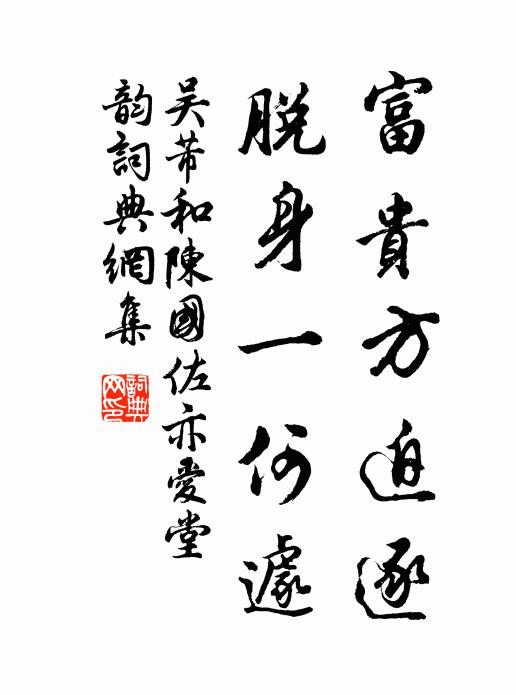 富貴方迫逐
脫身一何遽
吳芾和陳國佐亦愛堂
韵詞典網集
詞典
网印